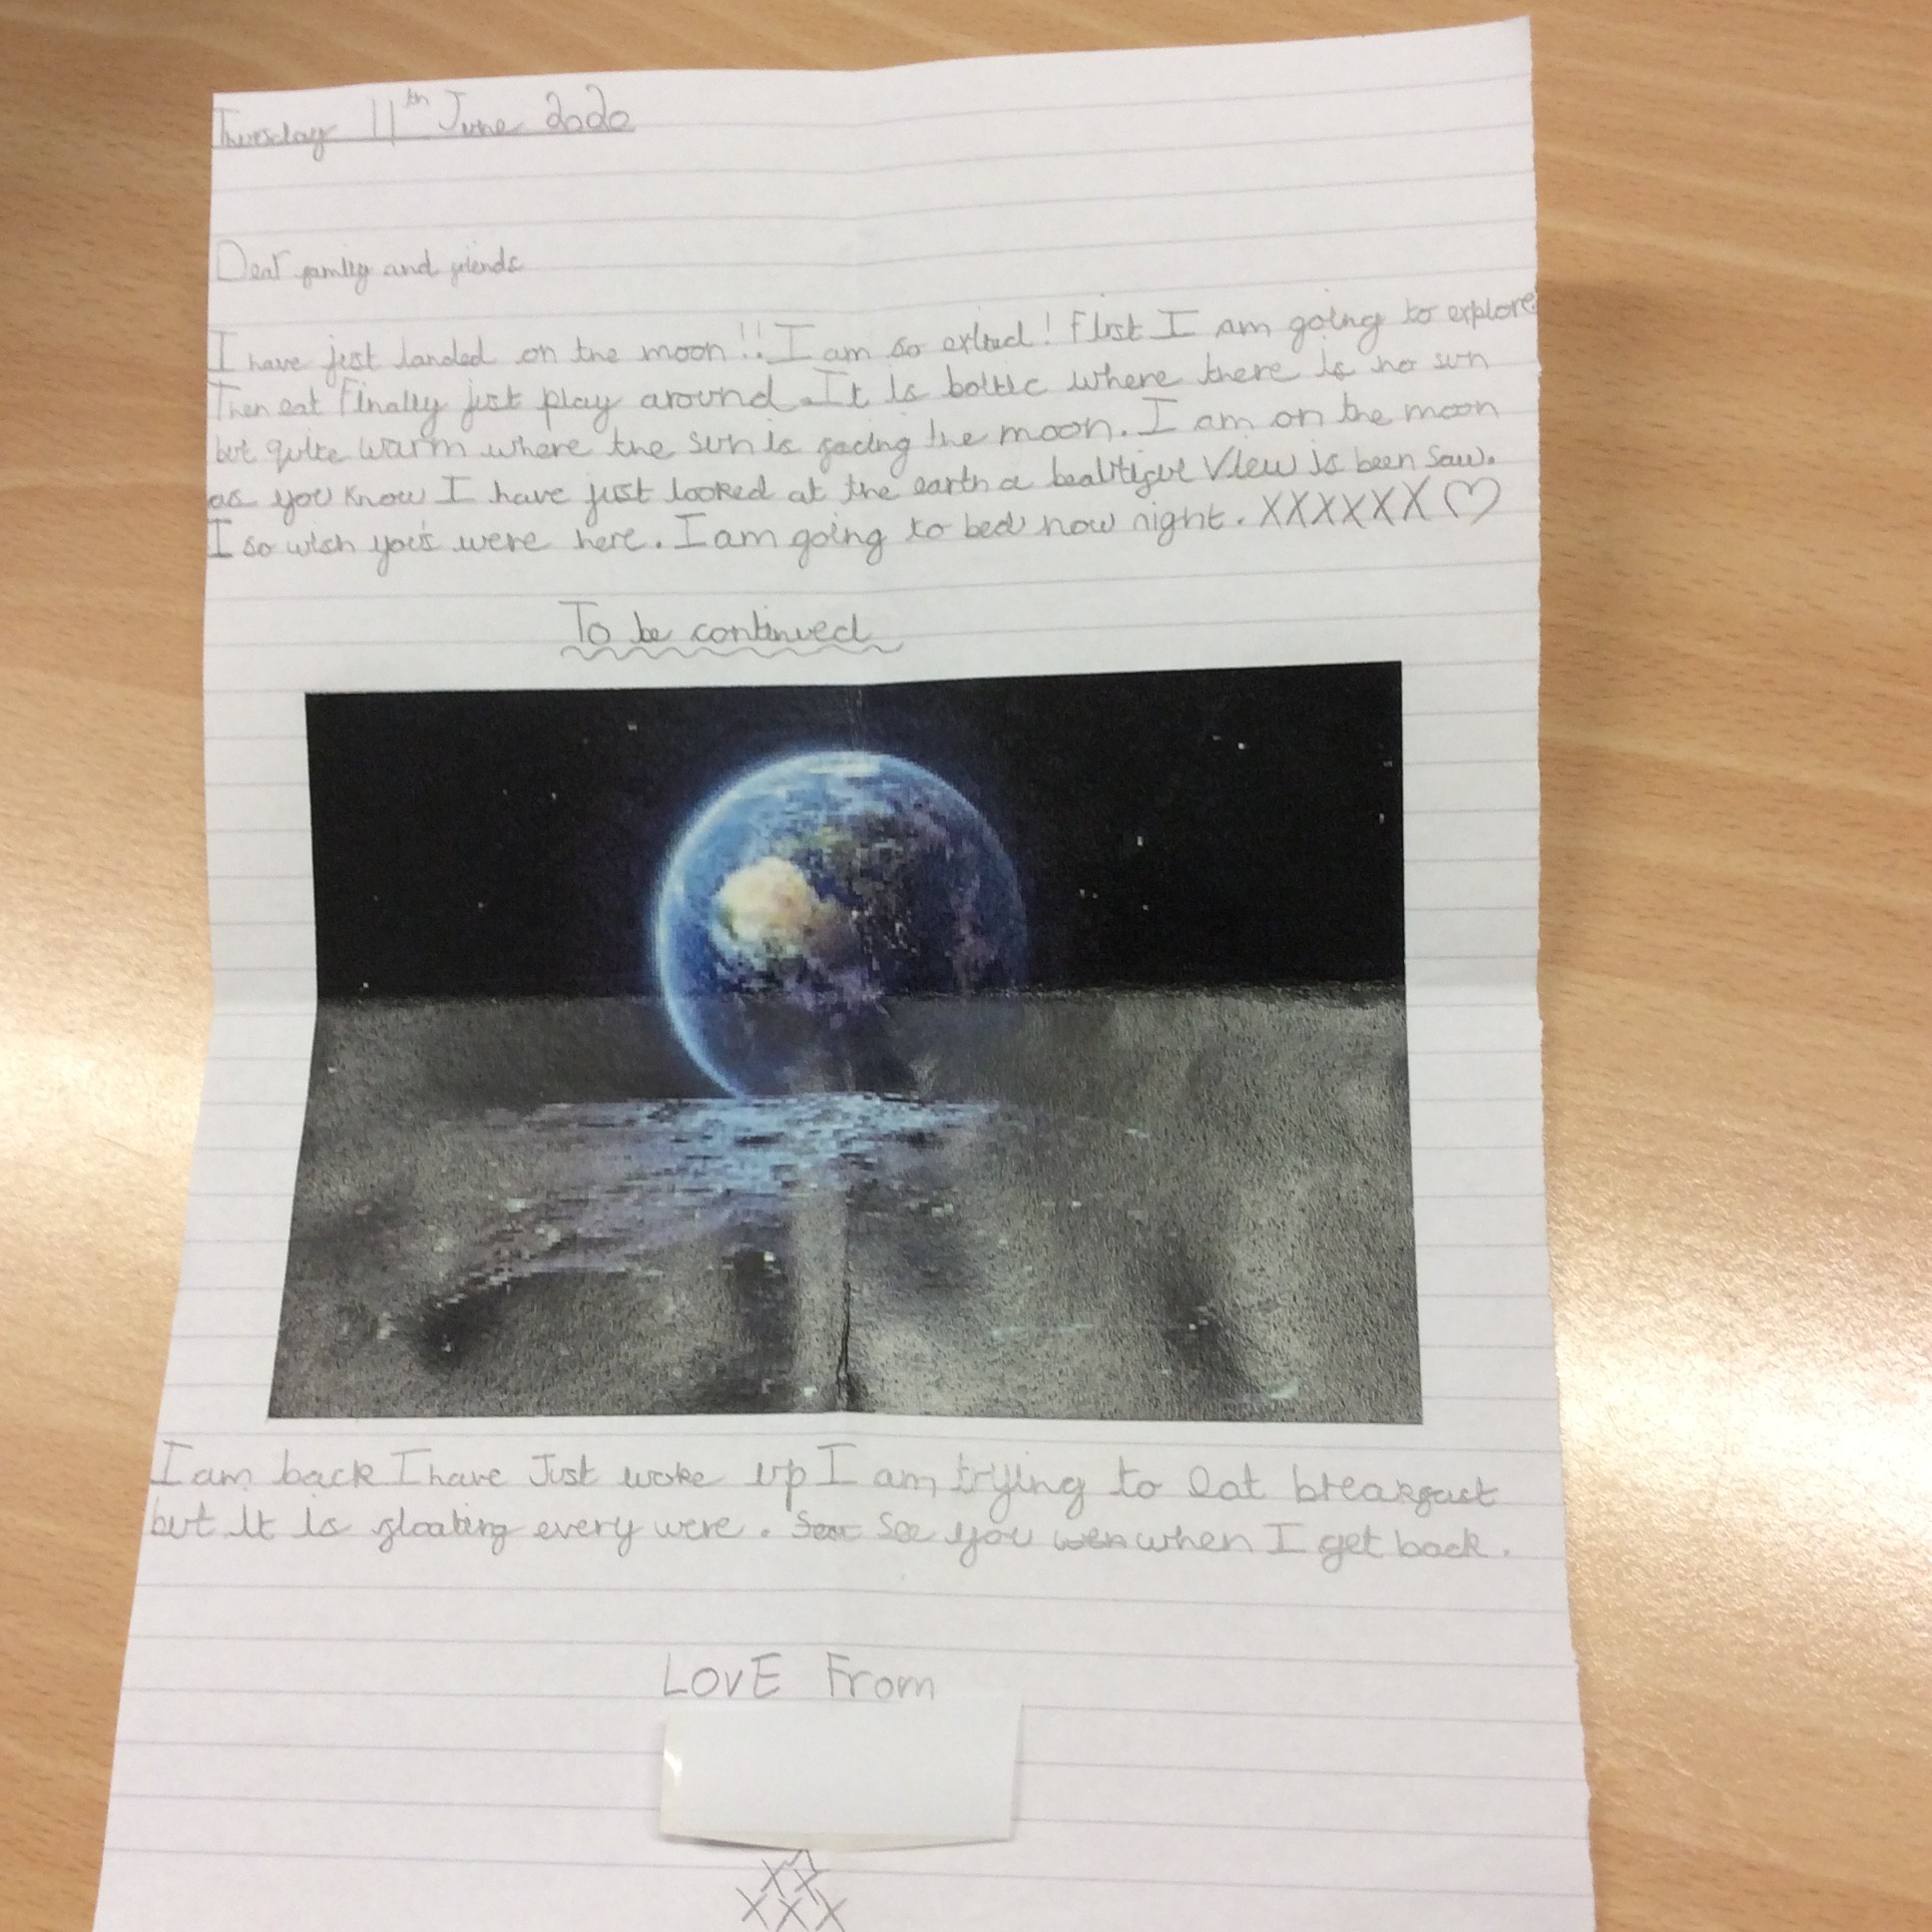 Thursday 11th June 2020
Dear family and friends
I have just landed on the moon!! I am so exited! First I am going to explore
Then eat Finally just play around. It is baltic where there is no sun
but quite warm where the sun is facing the moon. I am on the moon
as you know I have just looked at the earth a view is been saw.
I so wish you's were here. I am going to bed now night. XXXXXX♡
To be continued
I am back I have Just woke up I am trying to eat breakfast
but it is floating every were. See you when I get back.
LovE From
XX
XXX